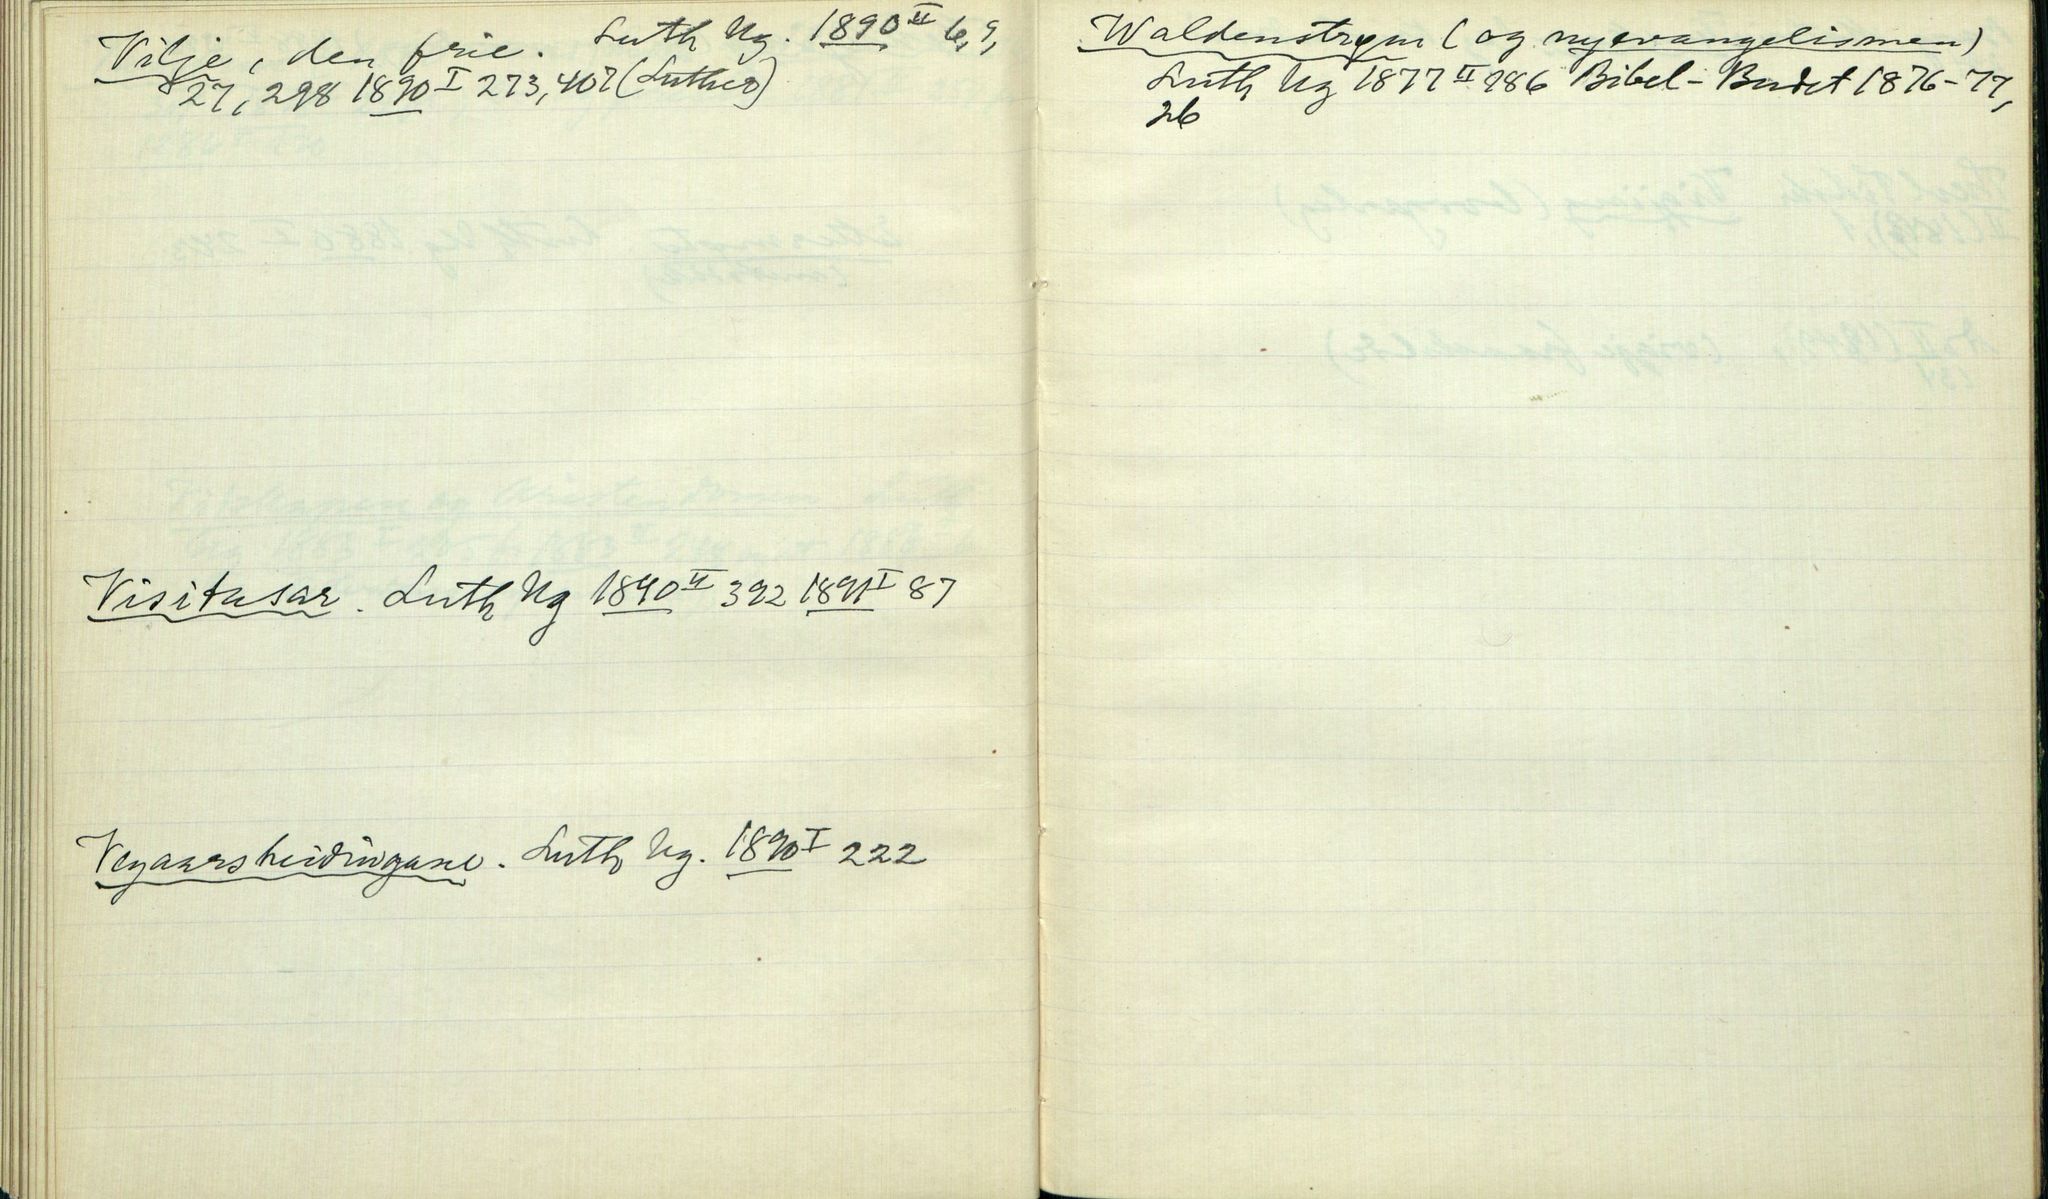 Vilje, den frie. Luth Ug. 1890 II 6, 9,
27, 298 1890 I 273, 407 (Luther)
Visitasar. Luth Ug 1890 II 392 1891 I 87
Vegaarsheidingane. Luth Ug. 1890 I 222
Waldenstrøm (og nyevangelismen)
Luth Ug 1877 II 286 Bibel-Budet 1876-77,
26